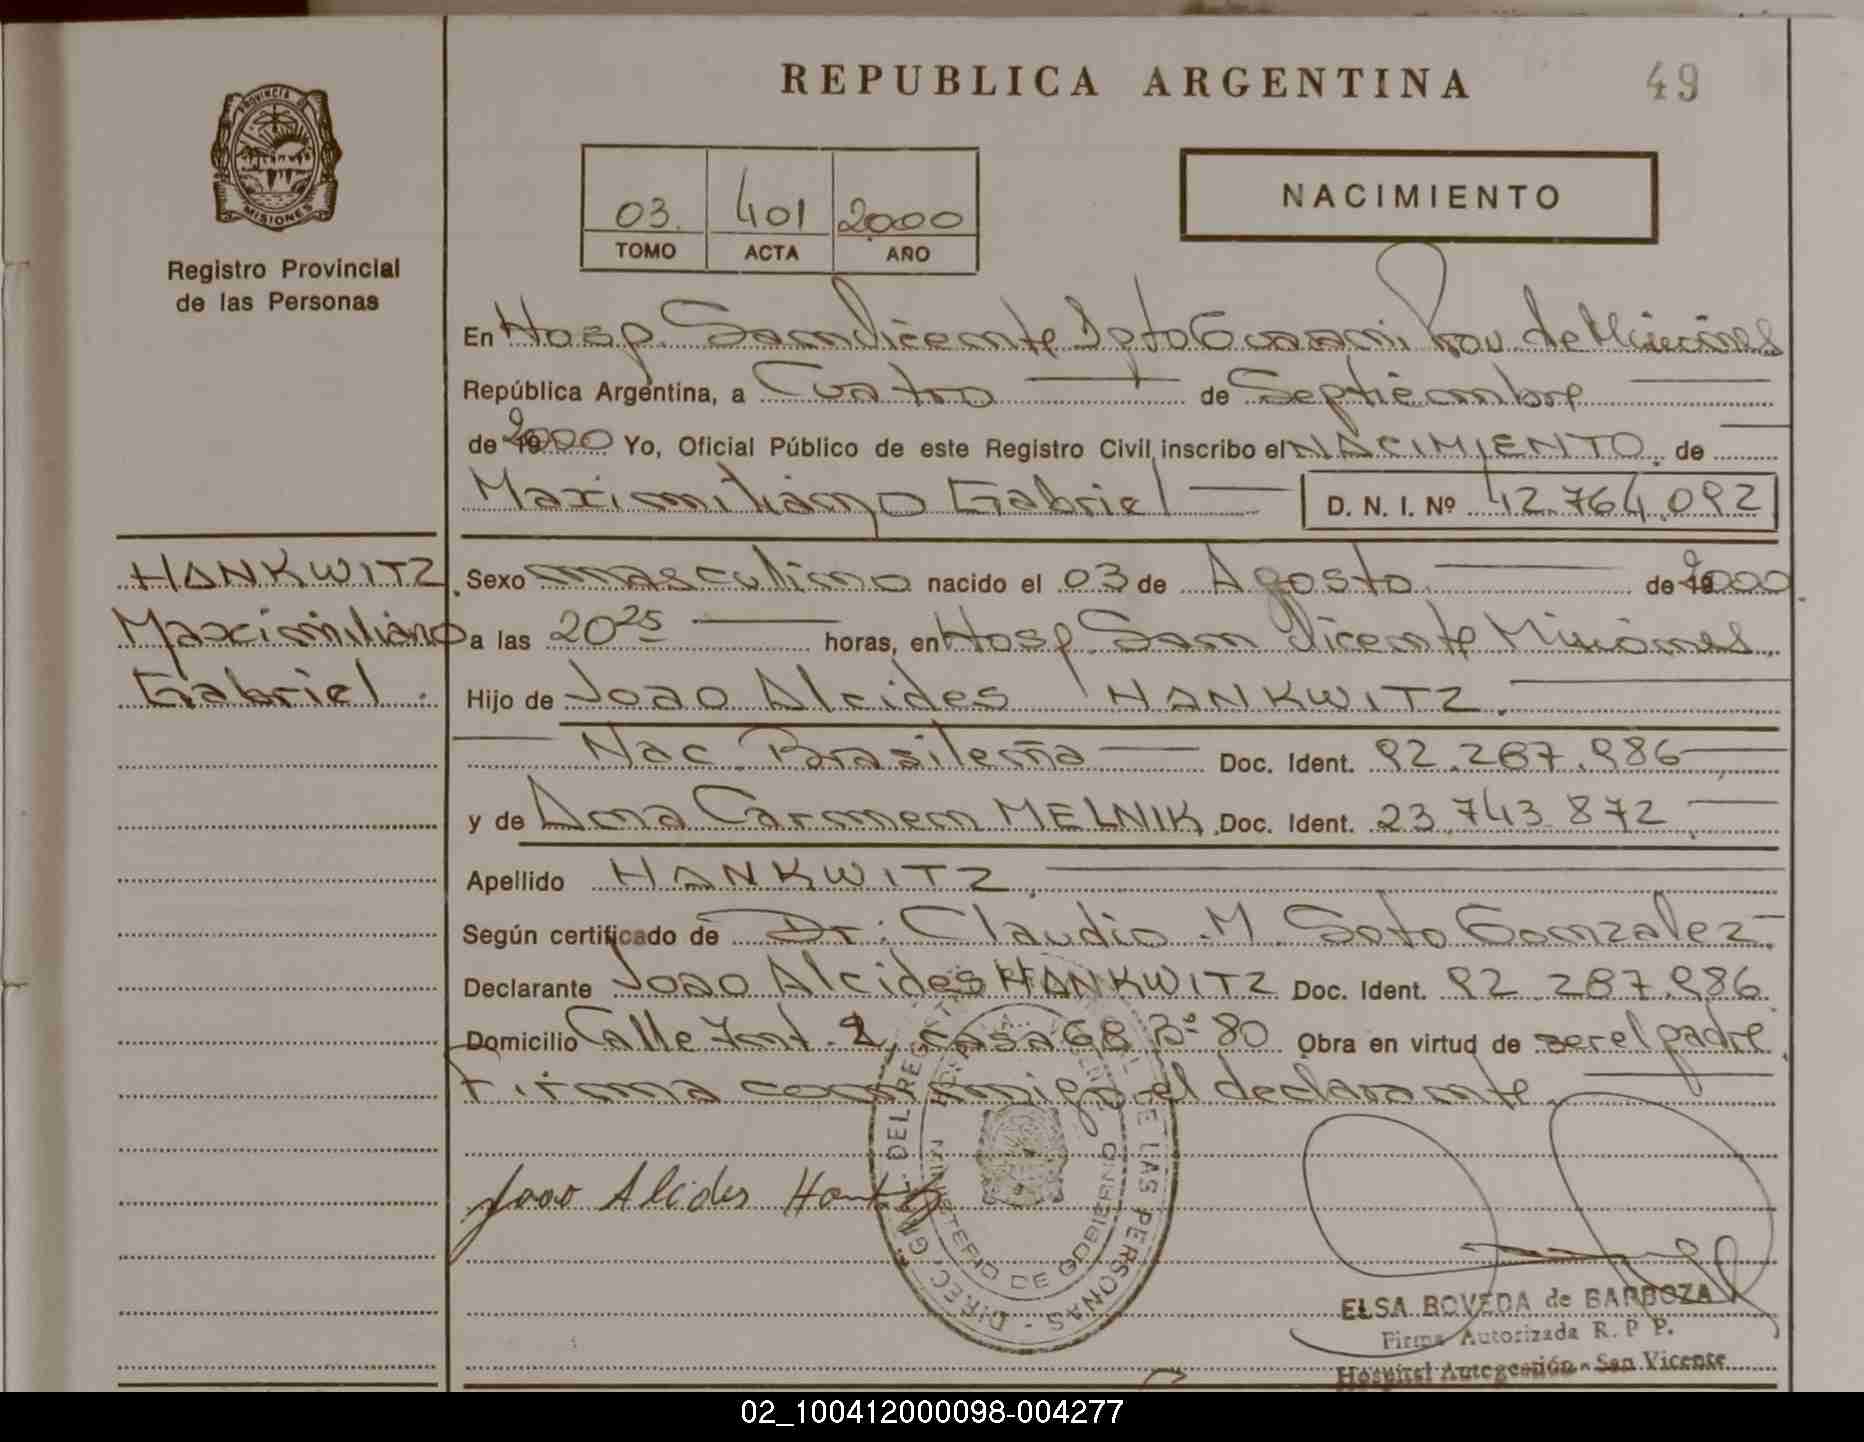 REPUBLICA ARGENTINA
49
PROVINCIA DE
MISIONES
Registro Provincial
de las Personas
03. 401 2000
TOMO ACTA AÑO
NACIMIENTO
En Hosp. San Vicente Dpto Guarani Prov. de Misiones
República Argentina, a Cuatro de Septiembre
de 19 2000 Yo, Oficial Público de este Registro Civil inscribo el NACIMIENTO. de
Maximiliano Gabriel D. N. I. Nº 42.764.092
HANKWITZ
Maximiliano
Gabriel.
Sexo masculino nacido el 03 de Agosto de 19 2000
a las 20 25 horas, en Hosp. San Vicente Misiones.
Hijo de Joao Alcides HANKWITZ.
Nac. Brasileña Doc. Ident. 92.287.986
y de Ana Carmen MELNIK. Doc. Ident. 23.743.872
Apellido HANKWITZ.
Según certificado de Dr. Claudio M. Soto Gonzalez
Declarante Joao Alcides HANKWITZ Doc. Ident. 92.287.986
Domicilio Calle Int. 2, casa 68 Bº 80 Obra en virtud de ser el padre.
Firma conmigo el declarante.
Joao Alcides
DIREC. GRAL. DEL REG. DE LAS PERSONAS
MINISTERIO DE GOBIERNO
ELSA BOVEDA de BARBOZA
Firma Autorizada R. P. P.
Hospital Autogestión - San Vicente
02_100412000098-004277